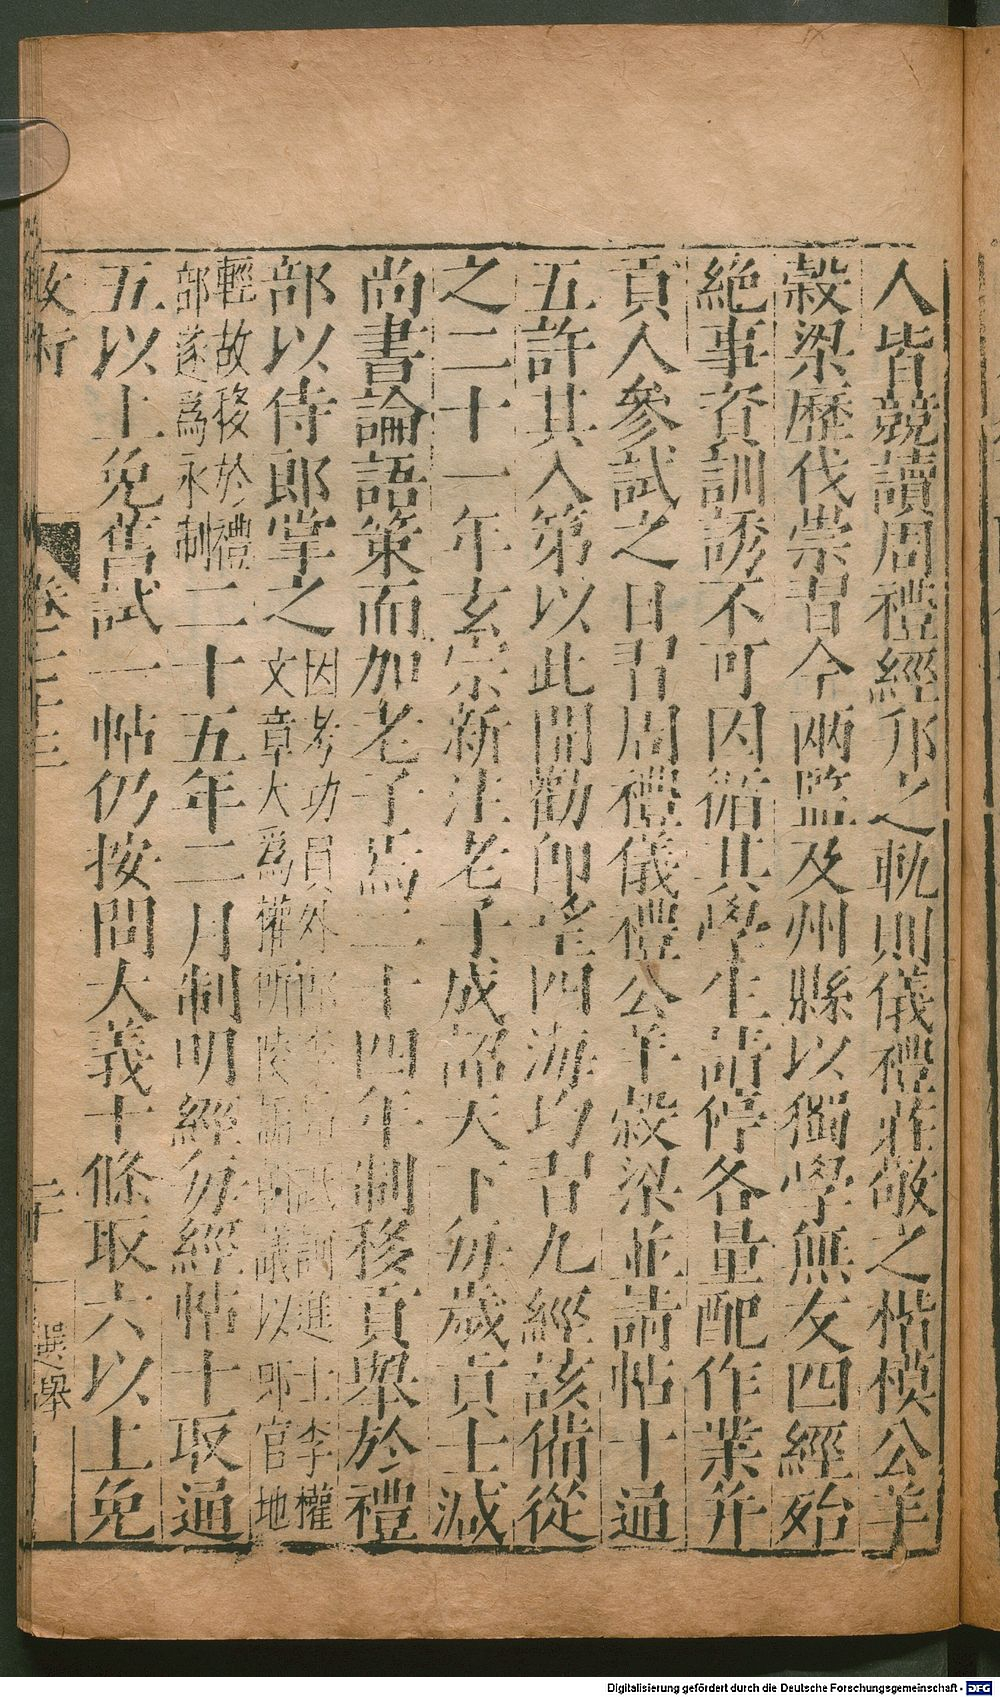 人皆競讀周禮經邦之軌則儀禮莊敬之楷模公羊
穀梁歷代崇習今兩監及州縣以獨學無友四經殆
絕事資訓誘不可因循其學生請停各量配作業并
貢人參試之日習周禮儀禮公羊穀梁並請帖十通
五許其入第以此開勸即望四海均習九經該備從
之二十一年玄宗新注老子成詔天下每歲貢士減
尚書論語策而加老子焉二十四年制移貢舉於禮
部以侍郎掌之
因考功員外郎李昂詆訶進士李權
文章大爲權所陵訴朝議以郎官地
輕故移於禮
部遂爲永制
二十五年二月制明經每經帖十取通
五以上免舊試一帖仍按問大義十條取六以上免
卷二十三
二十
選舉
Digitalisierung gefördert durch die Deutsche Forschungsgemeinschaft - DFG